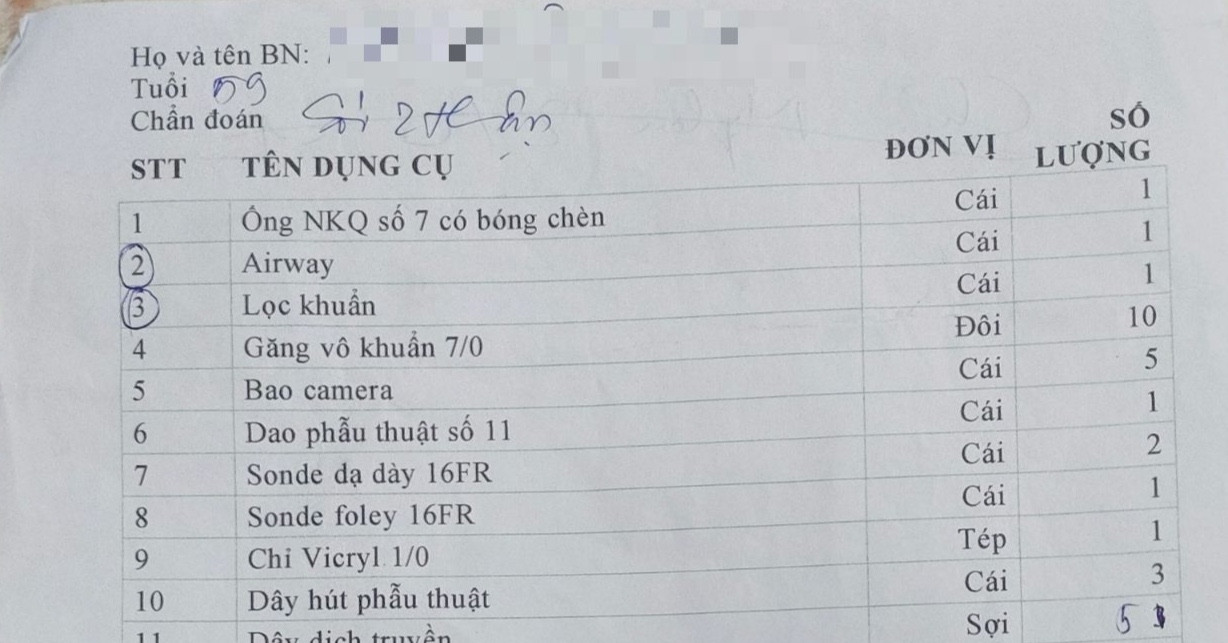 Họ và tên BN:
Tuổi 59
Chẩn đoán Sỏi 2 thận
STT TÊN DỤNG CỤ ĐƠN VỊ SỐ LƯỢNG
1 Ống NKQ số 7 có bóng chèn Cái 1
2 Airway Cái 1
3 Lọc khuẩn Cái 1
4 Găng vô khuẩn 7/0 Đôi 10
5 Bao camera Cái 5
6 Dao phẫu thuật số 11 Cái 1
7 Sonde dạ dày 16FR Cái 2
8 Sonde foley 16FR Cái 1
9 Chỉ Vicryl 1/0 Tép 1
10 Dây hút phẫu thuật Cái 3
11 Dây dịch truyền Sợi 5